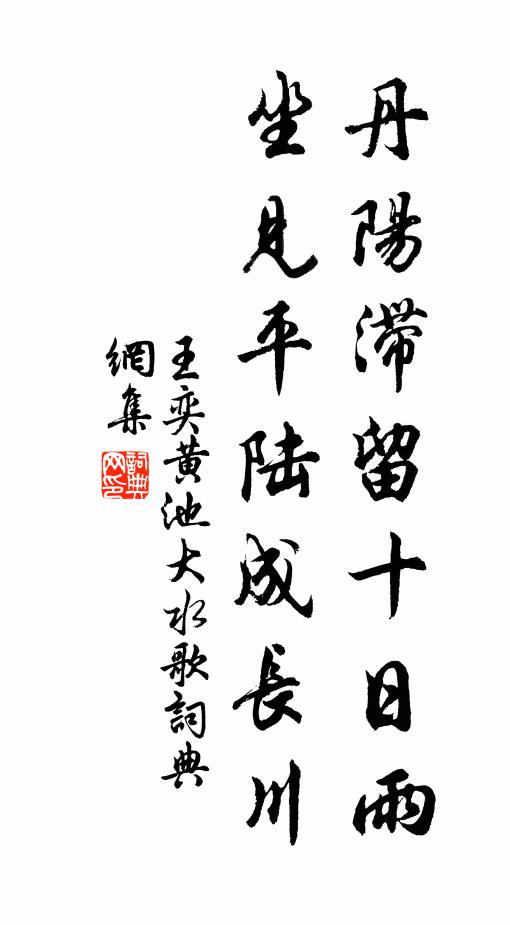 丹陽滯留十日雨
坐見平陆成長川
王奕黄池大水歌詞典
網集
詞典网印